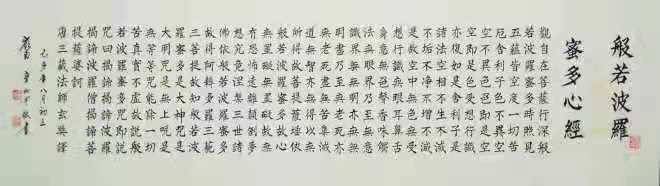 般若波羅
蜜多心經
觀自在菩薩行深般
若波羅蜜多時照見
五蘊皆空度一切苦
厄舍利子色不異空
空不異色色即是空
空即是色受想行識
亦復如是舍利子是
諸法空相不生不滅
不垢不淨不增不減
是故空中無色無受
想行識無眼耳鼻舌
身意無色聲香味觸
法無眼界乃至無意
識界無無明亦無無
明盡乃至無老死亦
無老死盡無苦集滅
道無智亦無得以無
所得故菩提薩埵依
般若波羅蜜多故心
無罣礙無罣礙故無
有恐怖遠離顛倒夢
想究竟涅槃三世諸
佛依般若波羅蜜多
故得阿耨多羅三藐
三菩提故知般若波
羅蜜多是大神咒是
大明咒是無上咒是
無等等咒能除一切
苦真實不虛故說般
若波羅蜜多咒即說
咒曰揭諦揭諦波羅
揭諦波羅僧揭諦菩
提薩婆訶
唐三藏法師玄奘譯
年八月初三